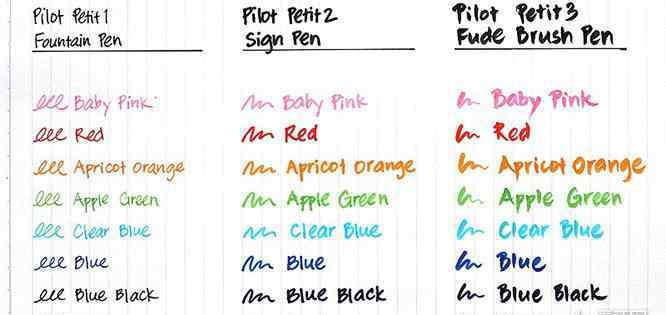 Pilot Petit1
Fountain Pen
Baby Pink
Red
Apricot Orange
Apple Green
Clear Blue
Blue
Blue Black
Pilot Petit2
Sign Pen
Baby Pink
Red
Apricot Orange
Apple Green
Clear Blue
Blue
Blue Black
Pilot Petit3
Fude Brush Pen
Baby Pink
Red
Apricot Orange
Apple Green
Clear Blue
Blue
Blue Black